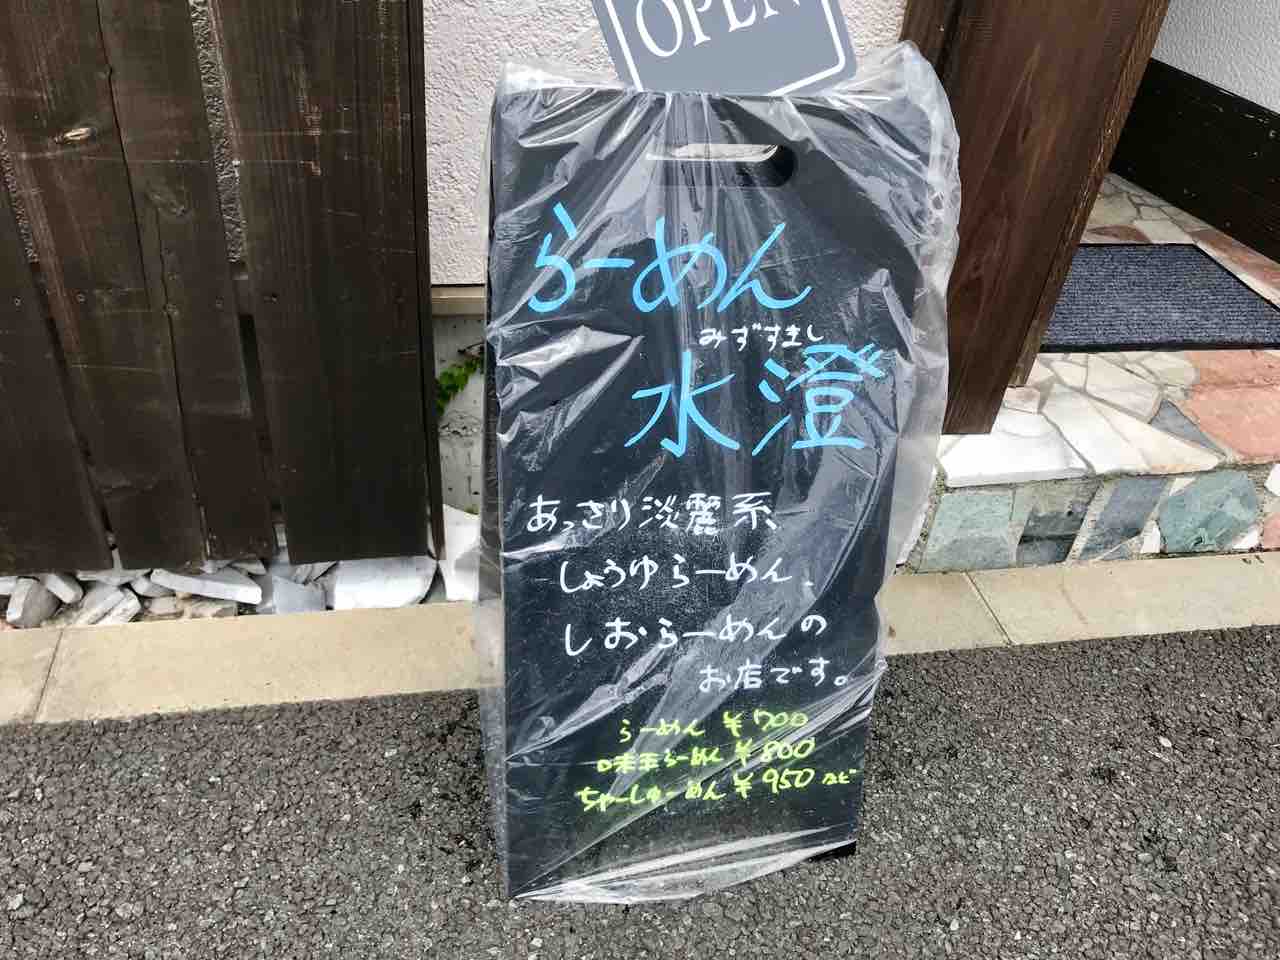 OPEN
らーめん
みずすまし
水澄
あっさり淡麗系、
しょうゆらーめん、
しおらーめんの
お店です。
らーめん ¥700
味玉らーめん ¥800
ちゃーしゅーめん ¥950 など